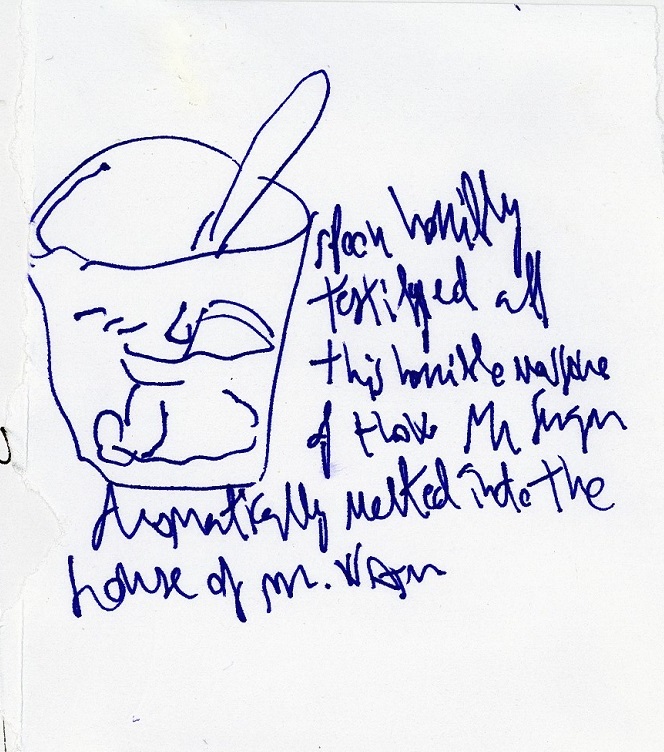 spoon horribly
testifyed all
this horrible massacre
of those Mr Sugar
Aromatically melted into the
house of mr. Warm